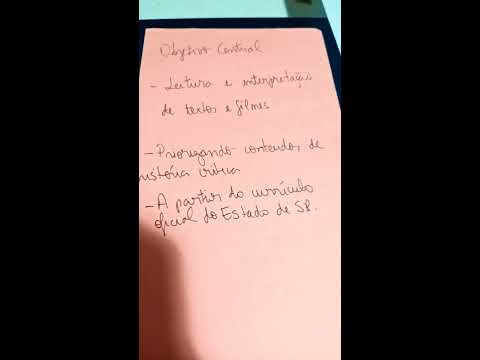 Objetivo Central
- Leitura e interpretação
de textos e filmes
- Priorizando conteúdos de
história crítica
- A partir do currículo
oficial do Estado de SP.